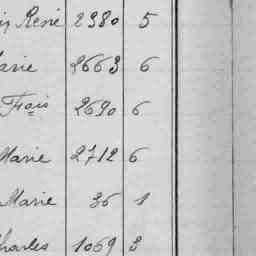 René 2980 5
Marie 2663 6
Fçois 2690 6
Marie 2712 6
Marie 36 1
Charles 1069 3